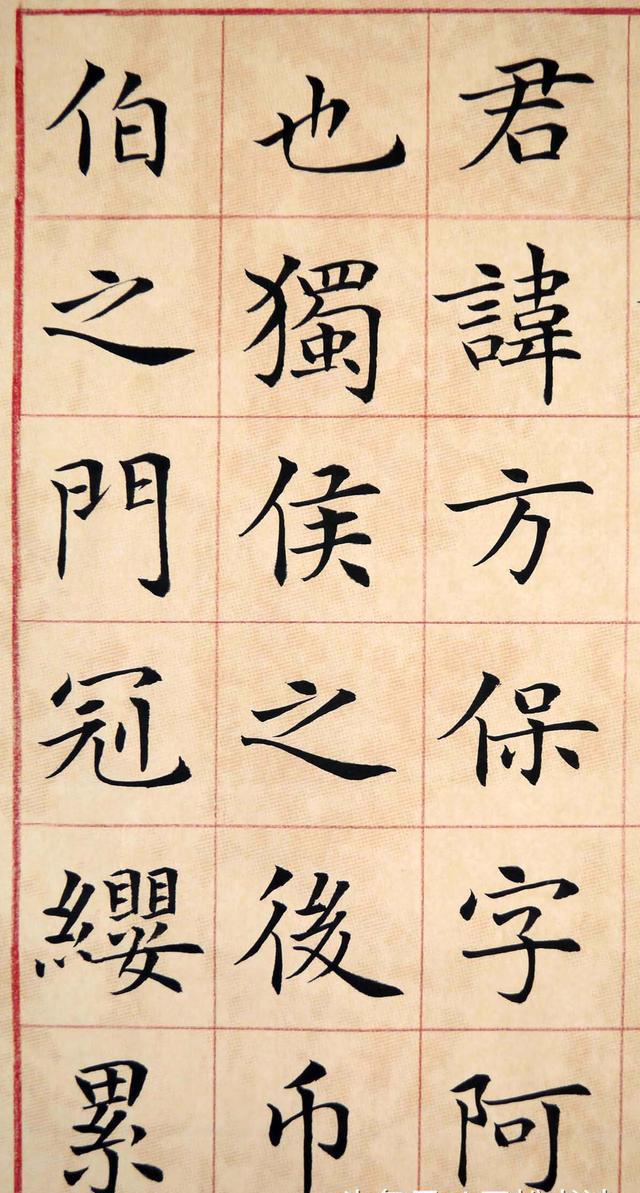 君諱方保字阿
也獨侯之後币
伯之門冠纓累